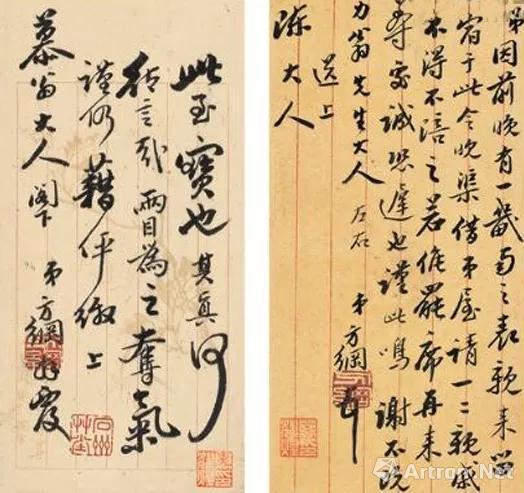 此至寶也其真何
待言哉兩目為之奪氣
謹仍藉伻繳上
慕翁大人閣下
弟方綱覆
弟因前晚有一畿南之表親來留
宿于此今晚渠借弟屋請一二親戚
不得不陪之若俟罷席再來
尊處誠恐遲也謹此鳴謝不既
力翁先生大人左右
弟方綱拜
送上
陳大人
Artron.Net